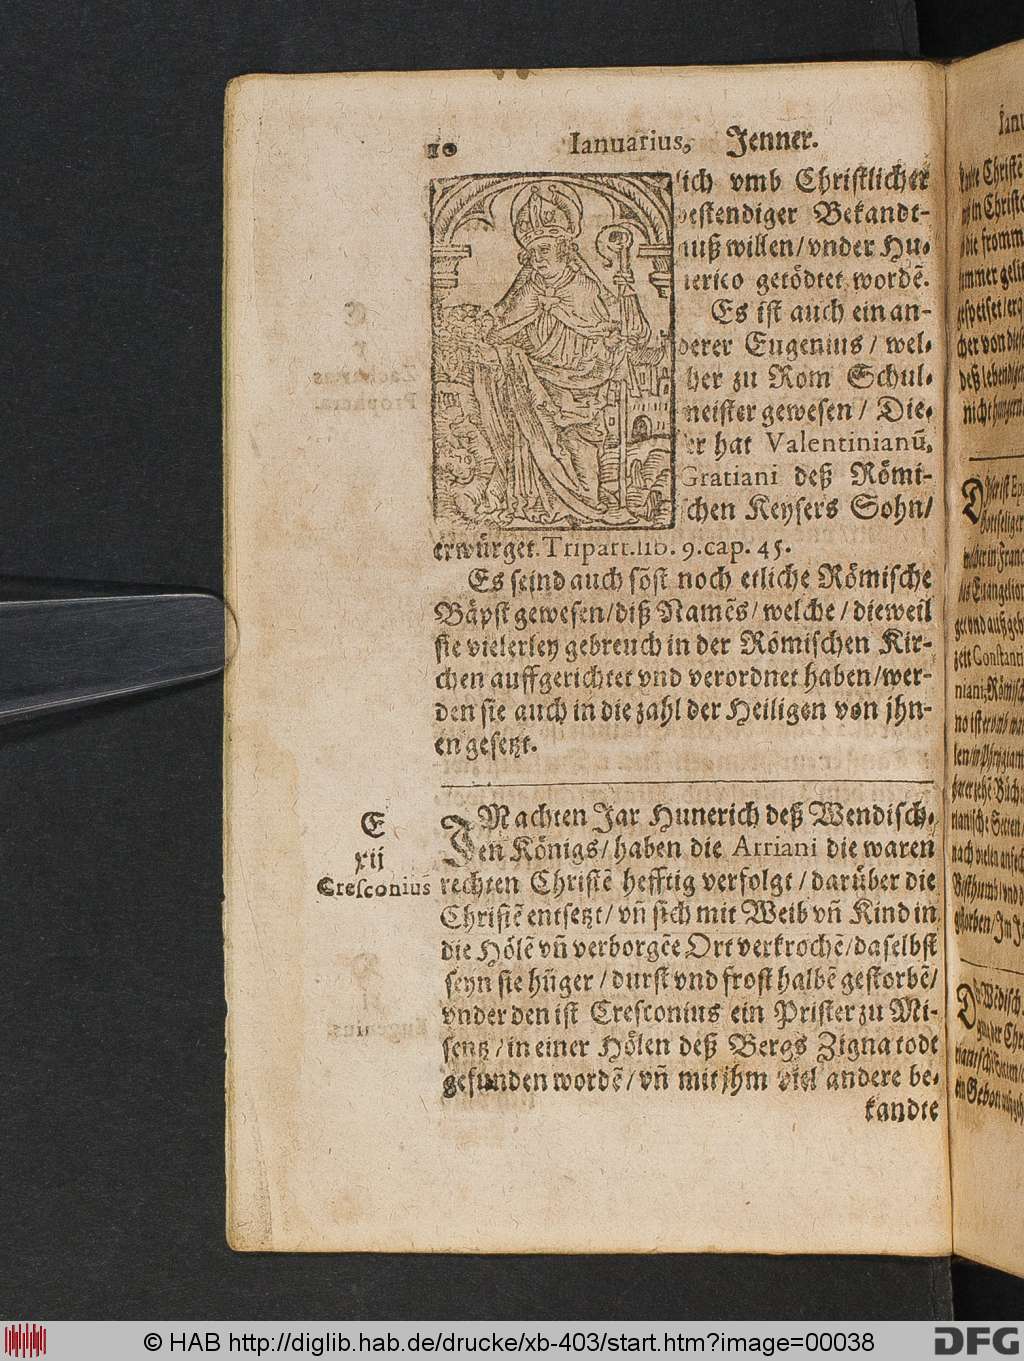 10 Ianuarius, Jenner.
lich vmb Christlicher
bestendiger Bekandt-
nuß willen/ vnder Hu-
nerico getödtet wordẽ.
Es ist auch ein an-
derer Eugenius / wel-
her zu Rom Schul-
meister gewesen / Die-
er hat Valentinianũ,
Gratiani deß Römi-
schen Keysers Sohn/
erwürget. Tripart. lib. 9. cap. 45.
Es seind auch sõst noch etliche Römische
Bäpst gewesen/ diß Namẽs/ welche / dieweil
sie vielerley gebreuch in der Römischen Kir-
chen auffgerichtet vnd verordnet haben/ wer-
den sie auch in die zahl der Heiligen von jhn-
en gesetzt.
E
xij
Cresconius
IM achten Jar Hunerich deß Wendisch-
en Königs/ haben die Arriani die waren
rechten Christẽ hefftig verfolgt / darüber die
Christẽ entsetzt/ vñ sich mit Weib vñ Kind in
die Hölẽ vñ verborgẽe Ort verkrochẽ/ daselbst
seyn sie hũger / durst vnd frost halbẽ gestorbẽ/
vnder den ist Cresconius ein Prister zu Mi-
sentz / in einer Hölen deß Bergs Zigna todt
gefunden wordẽ/ vñ mit jhm viel andere be-
kandte
© HAB http://diglib.hab.de/drucke/xb-403/start.htm?image=00038
DFG